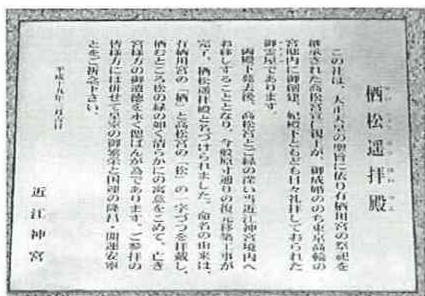 栖松遥拝殿
この社は、大正天皇の聖旨に依り有栖川宮の祭祀を
継承された高松宮宣仁親王が、御成婚ののち東京高輪の
宮邸内に御創建、妃殿下ともども日々礼拝しておられた
御霊屋であります
両殿下薨去後、高松宮とご縁の深い当近江神宮境内へ
お移しすることとなり、今般原寸通りの復元移築工事が
完了、栖松遥拝殿と名づけられました。命名の由来は、
有栖川宮の「栖」と高松宮の「松」の一字づつを拝戴し、
栖むところ松の緑の如く清らかにの寓意をこめて、亡き
宮様方の御遺徳を永く偲ばんが為であります。ご参拝の
皆様方には併せて皇室の御繁栄と国運の隆昌、開運安寧
とをご祈念下さい。
平成十九年 月吉日
近江神宮